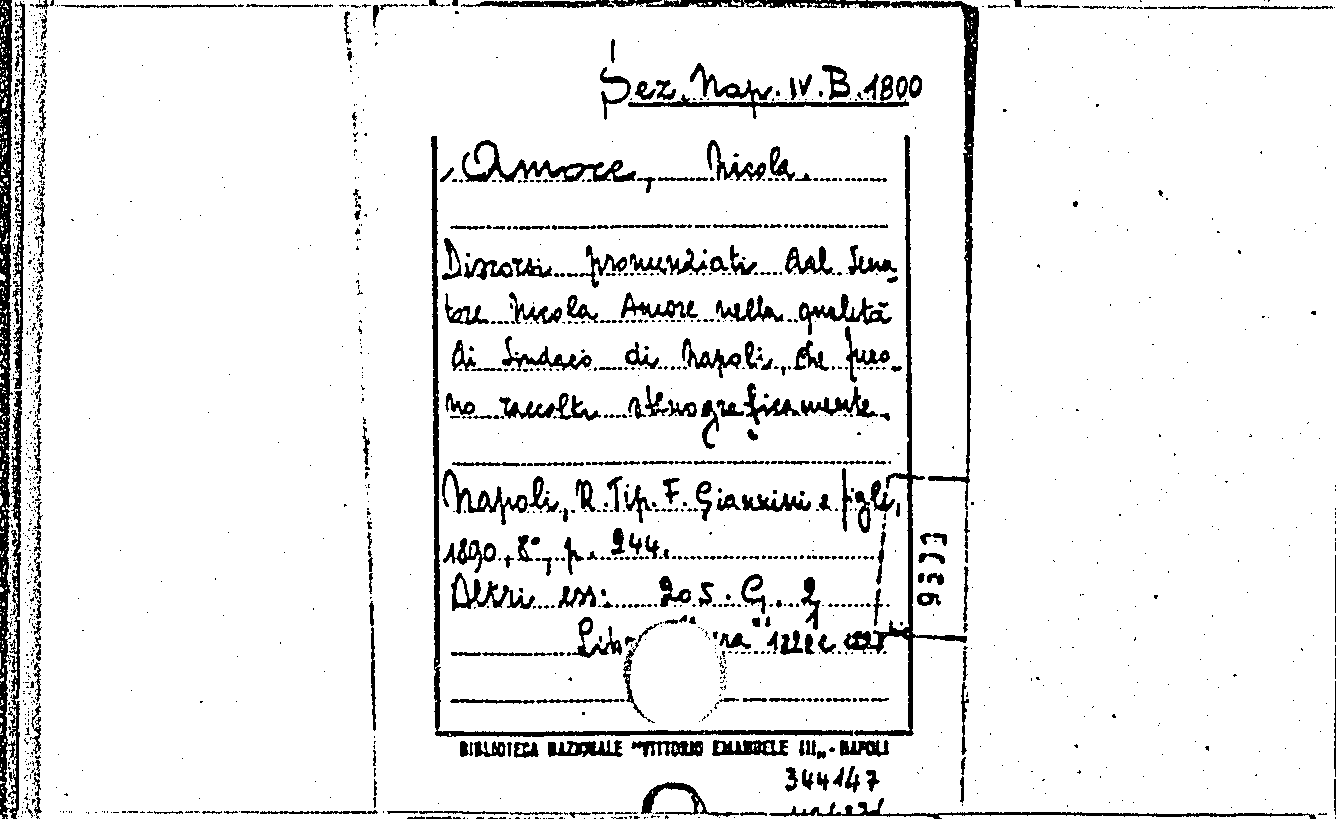 Sez. Nap. IV. B. 1800
Amore, Nicola.
Discorsi pronunziati dal Sena-
tore Nicola Amore nella qualità
di Sindaco di Napoli, che furo-
no raccolti stenograficamente.
Napoli, R. Tip. F. Giannini e figli,
1890, 8°, p. 244.
Altri ess: 205. G. 2
BIBLIOTECA NAZIONALE "VITTORIO EMANUELE III„ - NAPOLI
344147